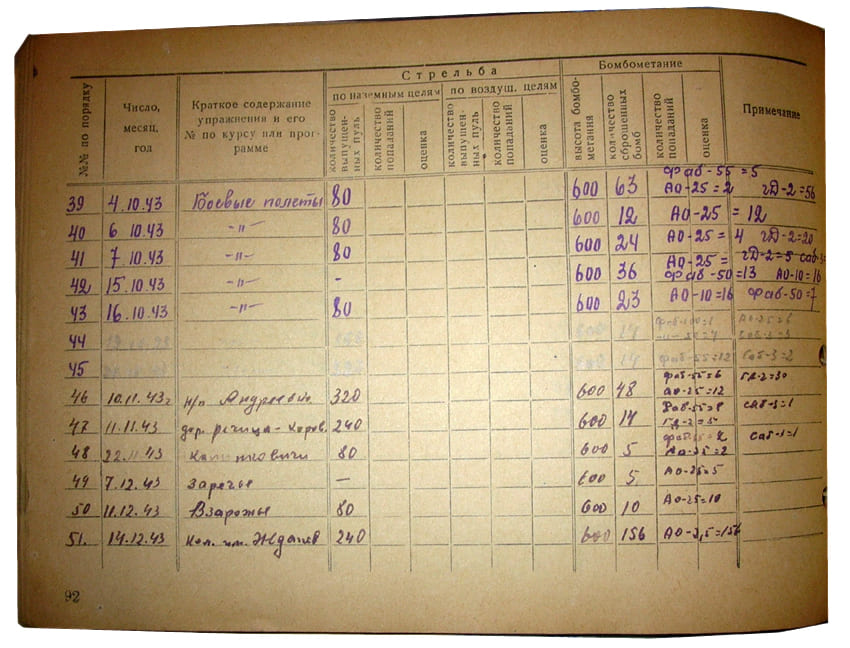 Стрельба Бомбометание
№№ по порядку Число, месяц, год Краткое содержание упражнения и его № по курсу или программе по наземным целям по воздуш. целям высота бомбометания количество сброшенных бомб количество попаданий оценка Примечание
количество выпущенных пуль количество попаданий оценка количество выпущенных пуль количество попаданий оценка
39 4.10.43 Боевые полеты 80 600 63 Фаб-55=5
АО-25=2 гД-2=56
40 6 10.43 -"- 80 600 12 АО-25 = 12
41 7 10.43 -"- 80 600 24 АО-25= 4 гД-2=20
42 15.10.43 -"- - 600 36 АО-25= гД-2=5 Саб-3=
Фаб-50=13 АО-10=16
43 16.10.43 -"- 80 600 23 АО-10=16 Фаб-50=7
44 14 АО-25=6
45 14 Фаб-55=12 Саб-3=2
46 10.11.43г н/п 320 600 48 Фаб-55=6 гд-2=30
АО-25=12
47 11.11.43 дер. речица- 240 600 14 Фаб-55=8 САБ-3=1
гд-2=5
48 22.11 43 80 600 5 Саб-1=1
АО-25=2
49 7.12.43 Заречье — 600 5 АО-25=5
50 11.12.43 80 600 10 АО-25=10
51. 14.12.43 им. 240 600 156 АО-2,5=156
92